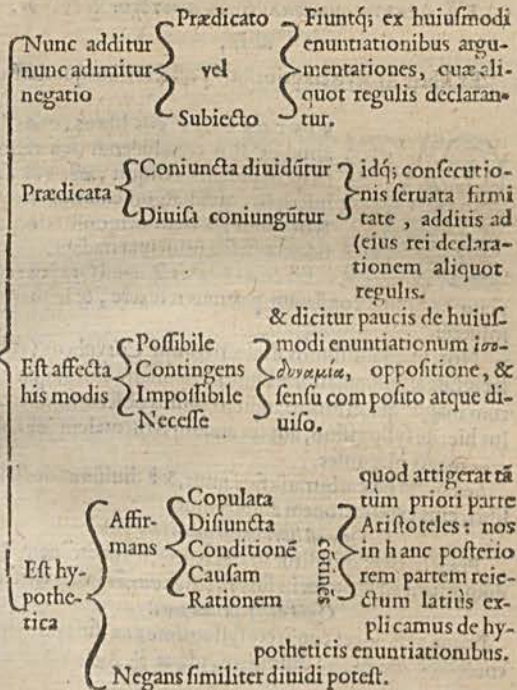 Nunc additur
nunc adimitur
negatio
Prædicato
vel
Subiecto
Fiuntq́; ex huiuſmodi
enuntiationibus argu-
mentationes, quæ ali-
quot regulis declaran-
tur.
Prædicata
Coniuncta diuidũtur
Diuiſa coniungũtur
idq́; conſecutio-
nis ſeruata firmi
tate, additis ad
(eius rei declara-
tionem aliquot
regulis.
Eſt affecta
his modis
Poſſibile
Contingens
Impoſſibile
Neceſſe
& dicitur paucis de huiuſ-
modi enuntiationum ἰσο-
δυναμία, oppoſitione, &
ſenſu compoſito atque di-
uiſo.
Eſt hy-
pothe-
tica
Affir-
mans
Copulata
Diſiuncta
Conditionē
Cauſam
Rationem
cōtinēs
quod attigerat tā
tùm priori parte
Ariſtoteles: nos
in hanc poſterio
rem partem reie-
ctum latiùs ex-
plicamus de hy-
potheticis enuntiationibus.
Negans ſimiliter diuidi poteſt.